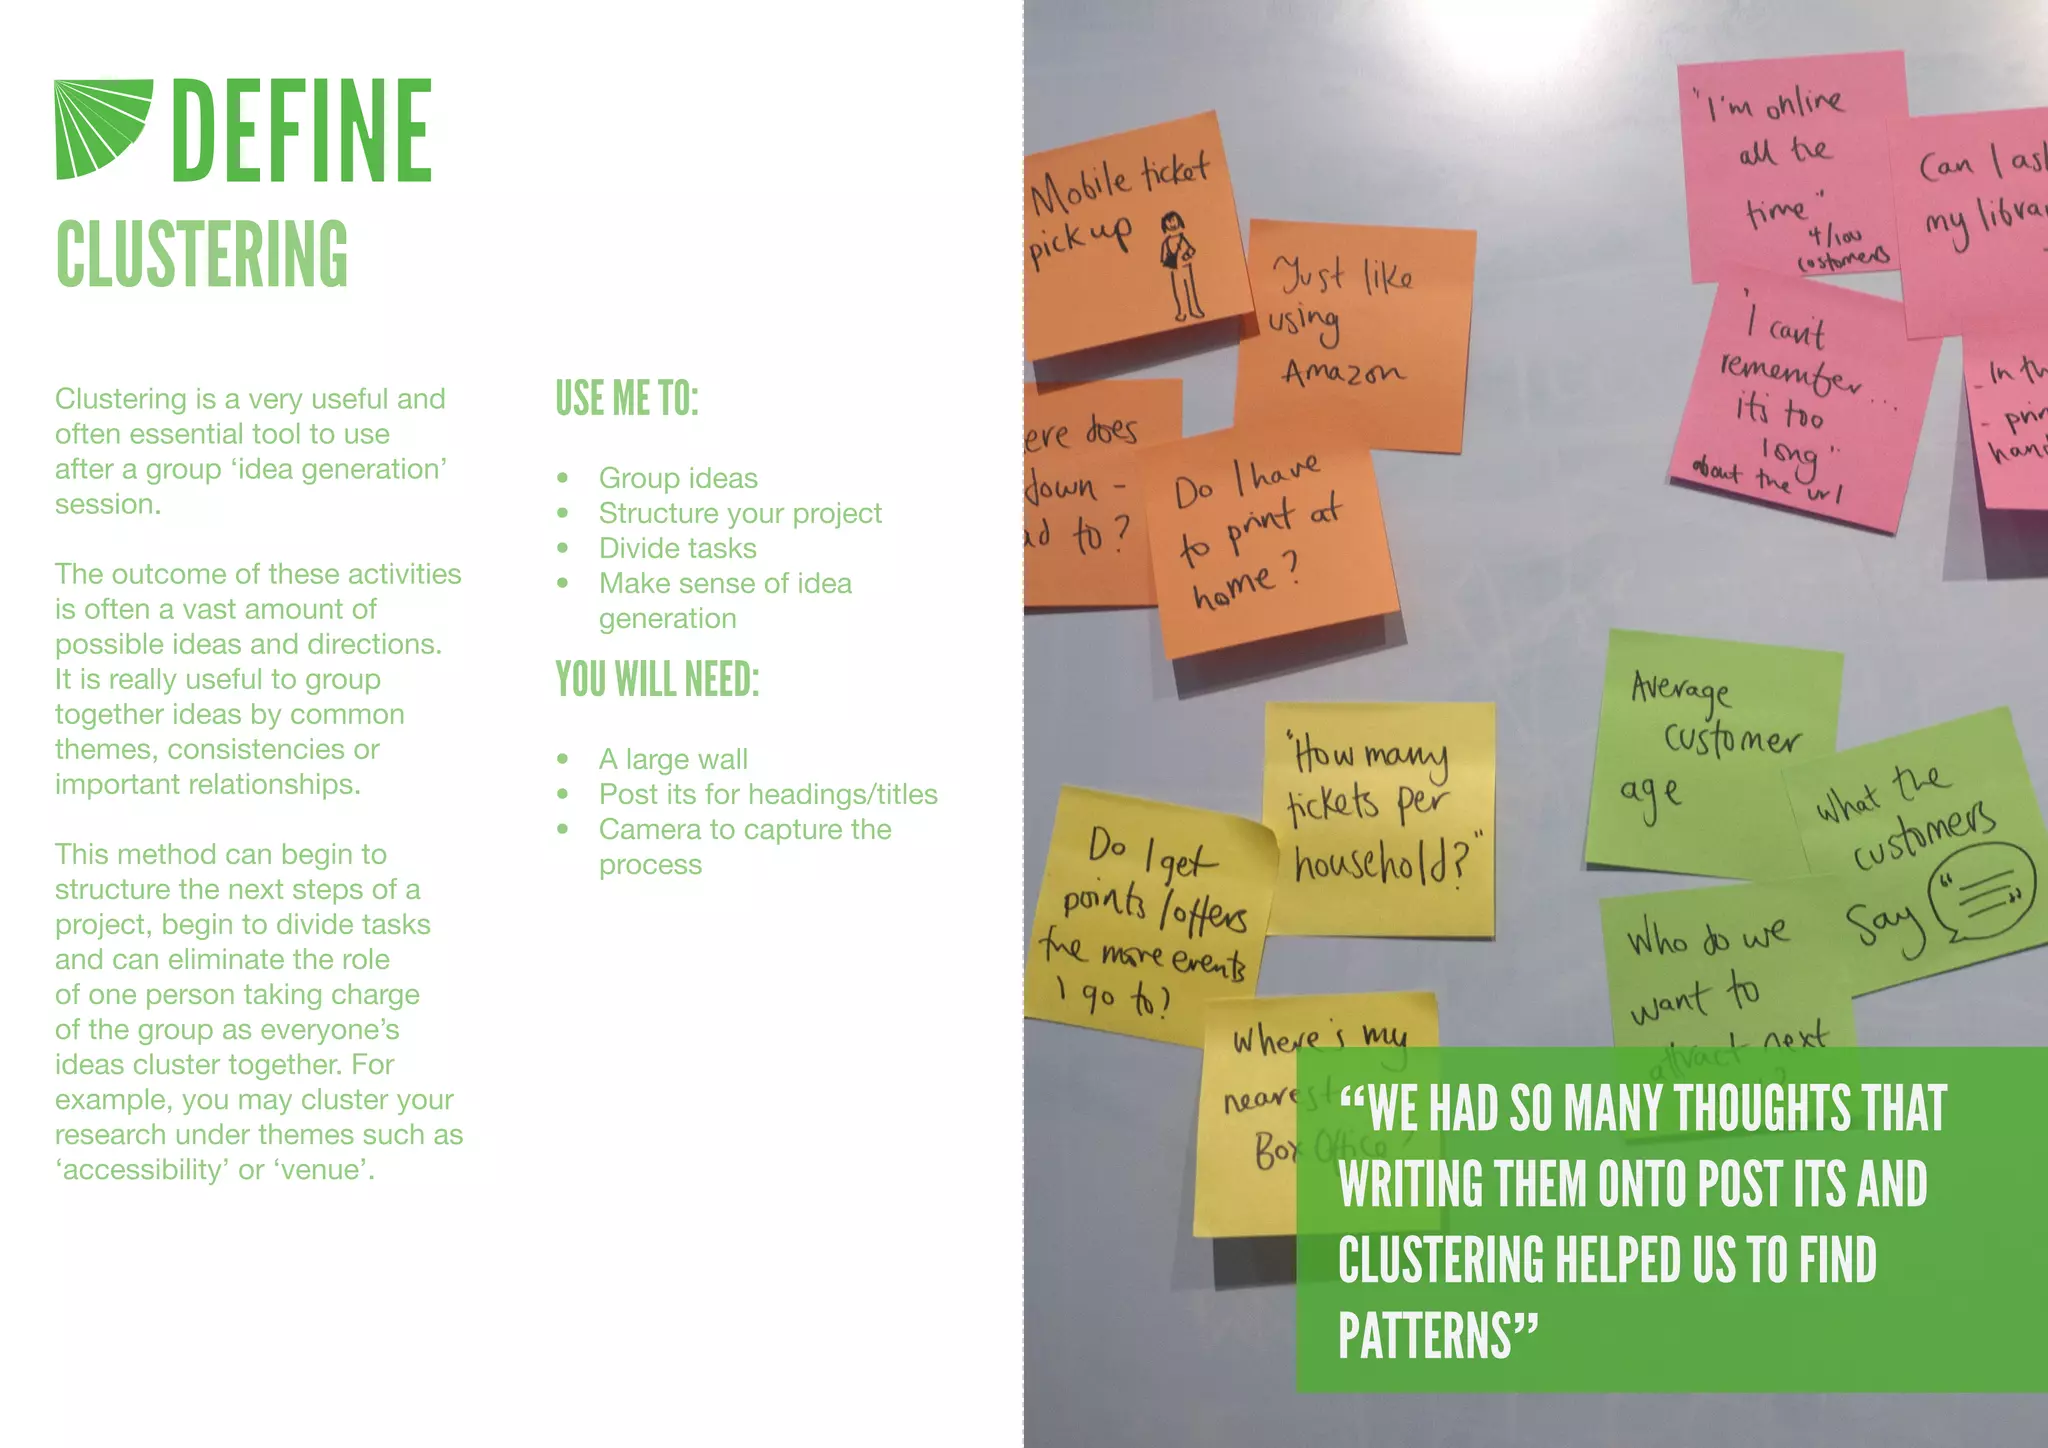 DEFINE
CLUSTERING
Clustering is a very useful and
often essential tool to use
after a group ‘idea generation’
session.
The outcome of these activities
is often a vast amount of
possible ideas and directions.
It is really useful to group
together ideas by common
themes, consistencies or
important relationships.
This method can begin to
structure the next steps of a
project, begin to divide tasks
and can eliminate the role
of one person taking charge
of the group as everyone’s
ideas cluster together. For
example, you may cluster your
research under themes such as
‘accessibility’ or ‘venue’.
USE ME TO:
• Group ideas
• Structure your project
• Divide tasks
• Make sense of idea
generation
YOU WILL NEED:
• A large wall
• Post its for headings/titles
• Camera to capture the
process
Mobile ticket
pick up
Just like
using
Amazon
does
down -
to?
Do I have
to print at
home?
"I'm online
all the
time"
4/100
customers
Can I ask
my
"I can't
remember...
it's too
long"
about the url
- In
-
"How many
tickets per
household?"
Do I get
points/offers
the more events
I go to?
Where's my
nearest
Box Office?
Average
customer
age
What the
customers
say
Who do we
want to
attract next
“WE HAD SO MANY THOUGHTS THAT
WRITING THEM ONTO POST ITS AND
CLUSTERING HELPED US TO FIND
PATTERNS”